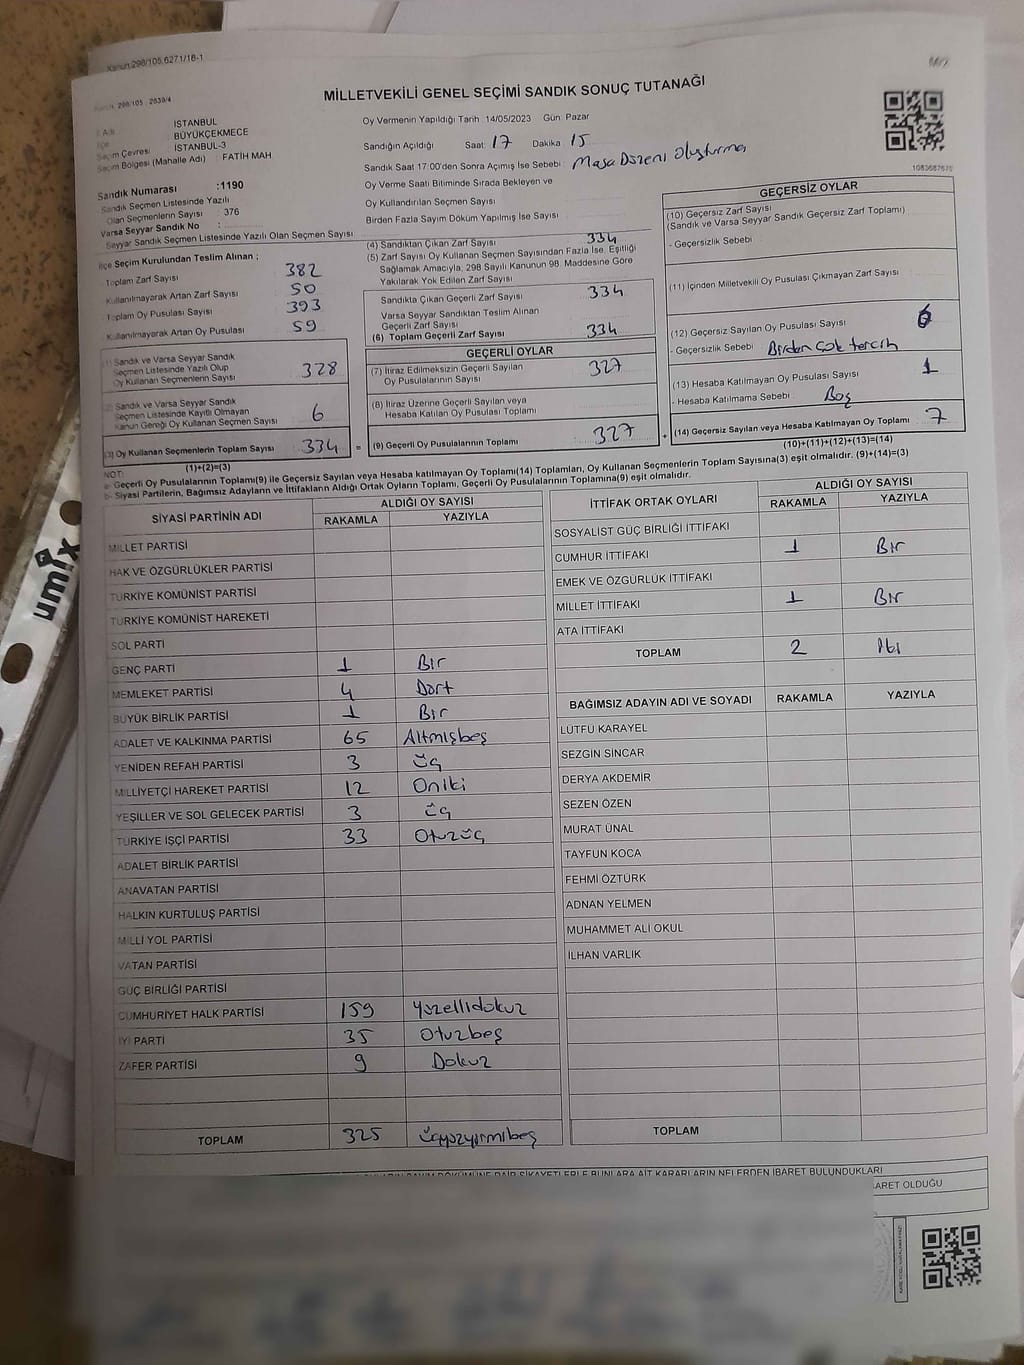 Kanun:298/105,6271/16-1
MİLLETVEKİLİ GENEL SEÇİMİ SANDIK SONUÇ TUTANAĞI
1083687670
İSTANBUL
BÜYÜKÇEKMECE
Seçim Çevresi İSTANBUL-3
Seçim Bölgesi (Mahalle Adı) : FATİH MAH
Sandık Numarası :1190
Sandık Seçmen Listesinde Yazılı
Olan Seçmenlerin Sayısı : 376
Varsa Seyyar Sandık No :
Seyyar Sandık Seçmen Listesinde Yazılı Olan Seçmen Sayısı
Oy Vermenin Yapıldığı Tarih 14/05/2023 Gün Pazar
Sandığın Açıldığı Saat 17 Dakika 15
Sandık Saat 17:00'den Sonra Açımış İse Sebebi Masa Düzeni Oluşturma
Oy Verme Saati Bitiminde Sırada Bekleyen ve
Oy Kullandırılan Seçmen Sayısı
Birden Fazla Sayım Döküm Yapılmış İse Sayısı
İlçe Seçim Kurulundan Teslim Alınan ;
Toplam Zarf Sayısı 382
Kullanılmayarak Artan Zarf Sayısı 50
Toplam Oy Pusulası Sayısı 393
Kullanılmayarak Artan Oy Pusulası 59
(1) Sandık ve Varsa Seyyar Sandık
Seçmen Listesinde Yazılı Olup
Oy Kullanan Seçmenlerin Sayısı 328
(2) Sandık ve Varsa Seyyar Sandık
Seçmen Listesinde Kayıtlı Olmayan
Kanun Gereği Oy Kullanan Seçmen Sayısı 6
(3) Oy Kullanan Seçmenlerin Toplam Sayısı 334 =
(4) Sandıktan Çıkan Zarf Sayısı 334
(5) Zarf Sayısı Oy Kullanan Seçmen Sayısından Fazla İse, Eşitliği
Sağlamak Amacıyla, 298 Sayılı Kanunun 98. Maddesine Göre
Yakılarak Yok Edilen Zarf Sayısı
Sandıkta Çıkan Geçerli Zarf Sayısı 334
Varsa Seyyar Sandıktan Teslim Alınan
Geçerli Zarf Sayısı
(6) Toplam Geçerli Zarf Sayısı 334
GEÇERLİ OYLAR
(7) İtiraz Edilmeksizin Geçerli Sayılan
Oy Pusulalarının Sayısı 327
(8) İtiraz Üzerine Geçerli Sayılan veya
Hesaba Katılan Oy Pusulası Toplamı
(9) Geçerli Oy Pusulalarının Toplamı 327 +
GEÇERSİZ OYLAR
(10) Geçersiz Zarf Sayısı
(Sandık ve Varsa Seyyar Sandık Geçersiz Zarf Toplamı)
- Geçersizlik Sebebi
(11) İçinden Milletvekili Oy Pusulası Çıkmayan Zarf Sayısı
(12) Geçersiz Sayılan Oy Pusulası Sayısı 6
- Geçersizlik Sebebi Birden çok tercih
(13) Hesaba Katılmayan Oy Pusulası Sayısı 1
- Hesaba Katılmama Sebebi Boş
(14) Geçersiz Sayılan veya Hesaba Katılmayan Oy Toplamı 7
(1)+(2)=(3)
(10)+(11)+(12)+(13)=(14)
NOT:
a- Geçerli Oy Pusulalarının Toplamı(9) ile Geçersiz Sayılan veya Hesaba katılmayan Oy Toplamı(14) Toplamları, Oy Kullanan Seçmenlerin Toplam Sayısına(3) eşit olmalıdır. (9)+(14)=(3)
b- Siyasi Partilerin, Bağımsız Adayların ve İttifakların Aldığı Ortak Oyların Toplamı, Geçerli Oy Pusulalarının Toplamına(9) eşit olmalıdır.
SİYASİ PARTİNİN ADI ALDIĞI OY SAYISI
RAKAMLA YAZIYLA
MİLLET PARTİSİ
HAK VE ÖZGÜRLÜKLER PARTİSİ
TÜRKİYE KOMÜNİST PARTİSİ
TÜRKİYE KOMÜNİST HAREKETİ
SOL PARTİ
GENÇ PARTİ 1 Bir
MEMLEKET PARTİSİ 4 Dört
BÜYÜK BİRLİK PARTİSİ 1 Bir
ADALET VE KALKINMA PARTİSİ 65 Altmışbeş
YENİDEN REFAH PARTİSİ 3 Üç
MİLLİYETÇİ HAREKET PARTİSİ 12 Oniki
YEŞİLLER VE SOL GELECEK PARTİSİ 3 Üç
TÜRKİYE İŞÇİ PARTİSİ 33 Otuzüç
ADALET BİRLİK PARTİSİ
ANAVATAN PARTİSİ
HALKIN KURTULUŞ PARTİSİ
MİLLİ YOL PARTİSİ
VATAN PARTİSİ
GÜÇ BİRLİĞİ PARTİSİ
CUMHURİYET HALK PARTİSİ 159 Yüzellidokuz
İYİ PARTİ 35 Otuzbeş
ZAFER PARTİSİ 9 Dokuz
TOPLAM 325 Üçyüzyirmibeş
İTTİFAK ORTAK OYLARI ALDIĞI OY SAYISI
RAKAMLA YAZIYLA
SOSYALİST GÜÇ BİRLİĞİ İTTİFAKI
CUMHUR İTTİFAKI 1 Bir
EMEK VE ÖZGÜRLÜK İTTİFAKI
MİLLET İTTİFAKI 1 Bir
ATA İTTİFAKI
TOPLAM 2 İki
BAĞIMSIZ ADAYIN ADI VE SOYADI RAKAMLA YAZIYLA
LÜTFÜ KARAYEL
SEZGİN SİNCAR
DERYA AKDEMİR
SEZEN ÖZEN
MURAT ÜNAL
TAYFUN KOCA
FEHMİ ÖZTÜRK
ADNAN YELMEN
MUHAMMET ALİ OKUL
İLHAN VARLIK
TOPLAM
SAYIM DÖKÜMÜNE DAİR ŞİKAYETLERLE BUNLARA AİT KARARLARIN NELERDEN İBARET BULUNDUKLARI
OLDUĞU
umix